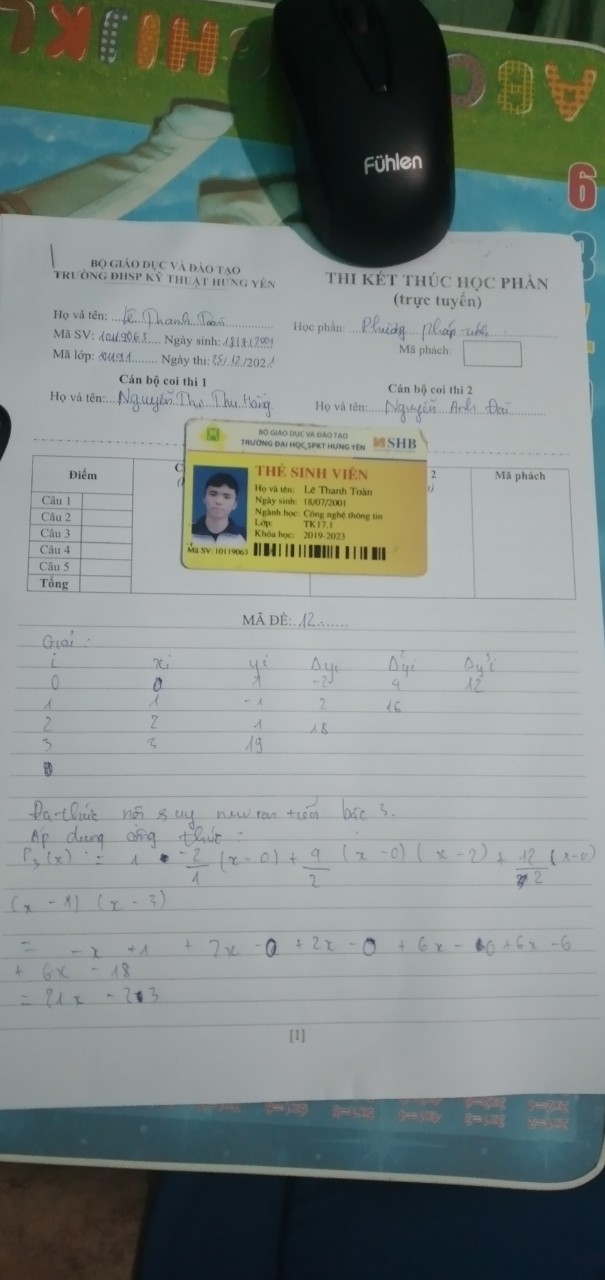 ABC HIJKL
Fühlen
6
BỘ GIÁO DỤC VÀ ĐÀO TẠO
TRƯỜNG ĐHSP KỸ THUẬT HƯNG YÊN
THI KẾT THÚC HỌC PHẦN
(trực tuyến)
Họ và tên: Lê Thanh Toàn
Học phần: Phương pháp tính
Mã SV: 10119063 Ngày sinh: 18/7/2001
Mã phách:
Mã lớp: Ngày thi: 25/12/2021
Cán bộ coi thi 1
Cán bộ coi thi 2
Họ và tên: Nguyễn Thị Thu Hằng
Họ và tên: Nguyễn Anh
BỘ GIÁO DỤC VÀ ĐÀO TẠO
TRƯỜNG ĐẠI HỌC SPKT HƯNG YÊN
SHB
THẺ SINH VIÊN
Họ và tên: Lê Thanh Toàn
Ngày sinh: 18/07/2001
Ngành học: Công nghệ thông tin
Lớp: TK17.1
Khóa học: 2019-2023
Mã SV: 10119063
Điểm
C
2
Mã phách
Câu 1
Câu 2
Câu 3
Câu 4
Câu 5
Tổng
MÃ ĐỀ: 12
Giải:
i xi yi Δyi Δ²yi Δ³yi
0 0 1 -2 4 12
1 1 -1 2 16
2 2 1 18
3 3 19
Đa thức nội suy newton tiến bậc 3.
Áp dụng công thức:
P₃(x) = 1 -2/1 (x-0) + 4/2 (x-0)(x-2) + 12/2 (x-0)
(x-1)(x-3)
= -x +1 + 2x -0 +2x -0 + 6x -0 +6x -6
+ 6x - 18
= 21x - 23
[1]